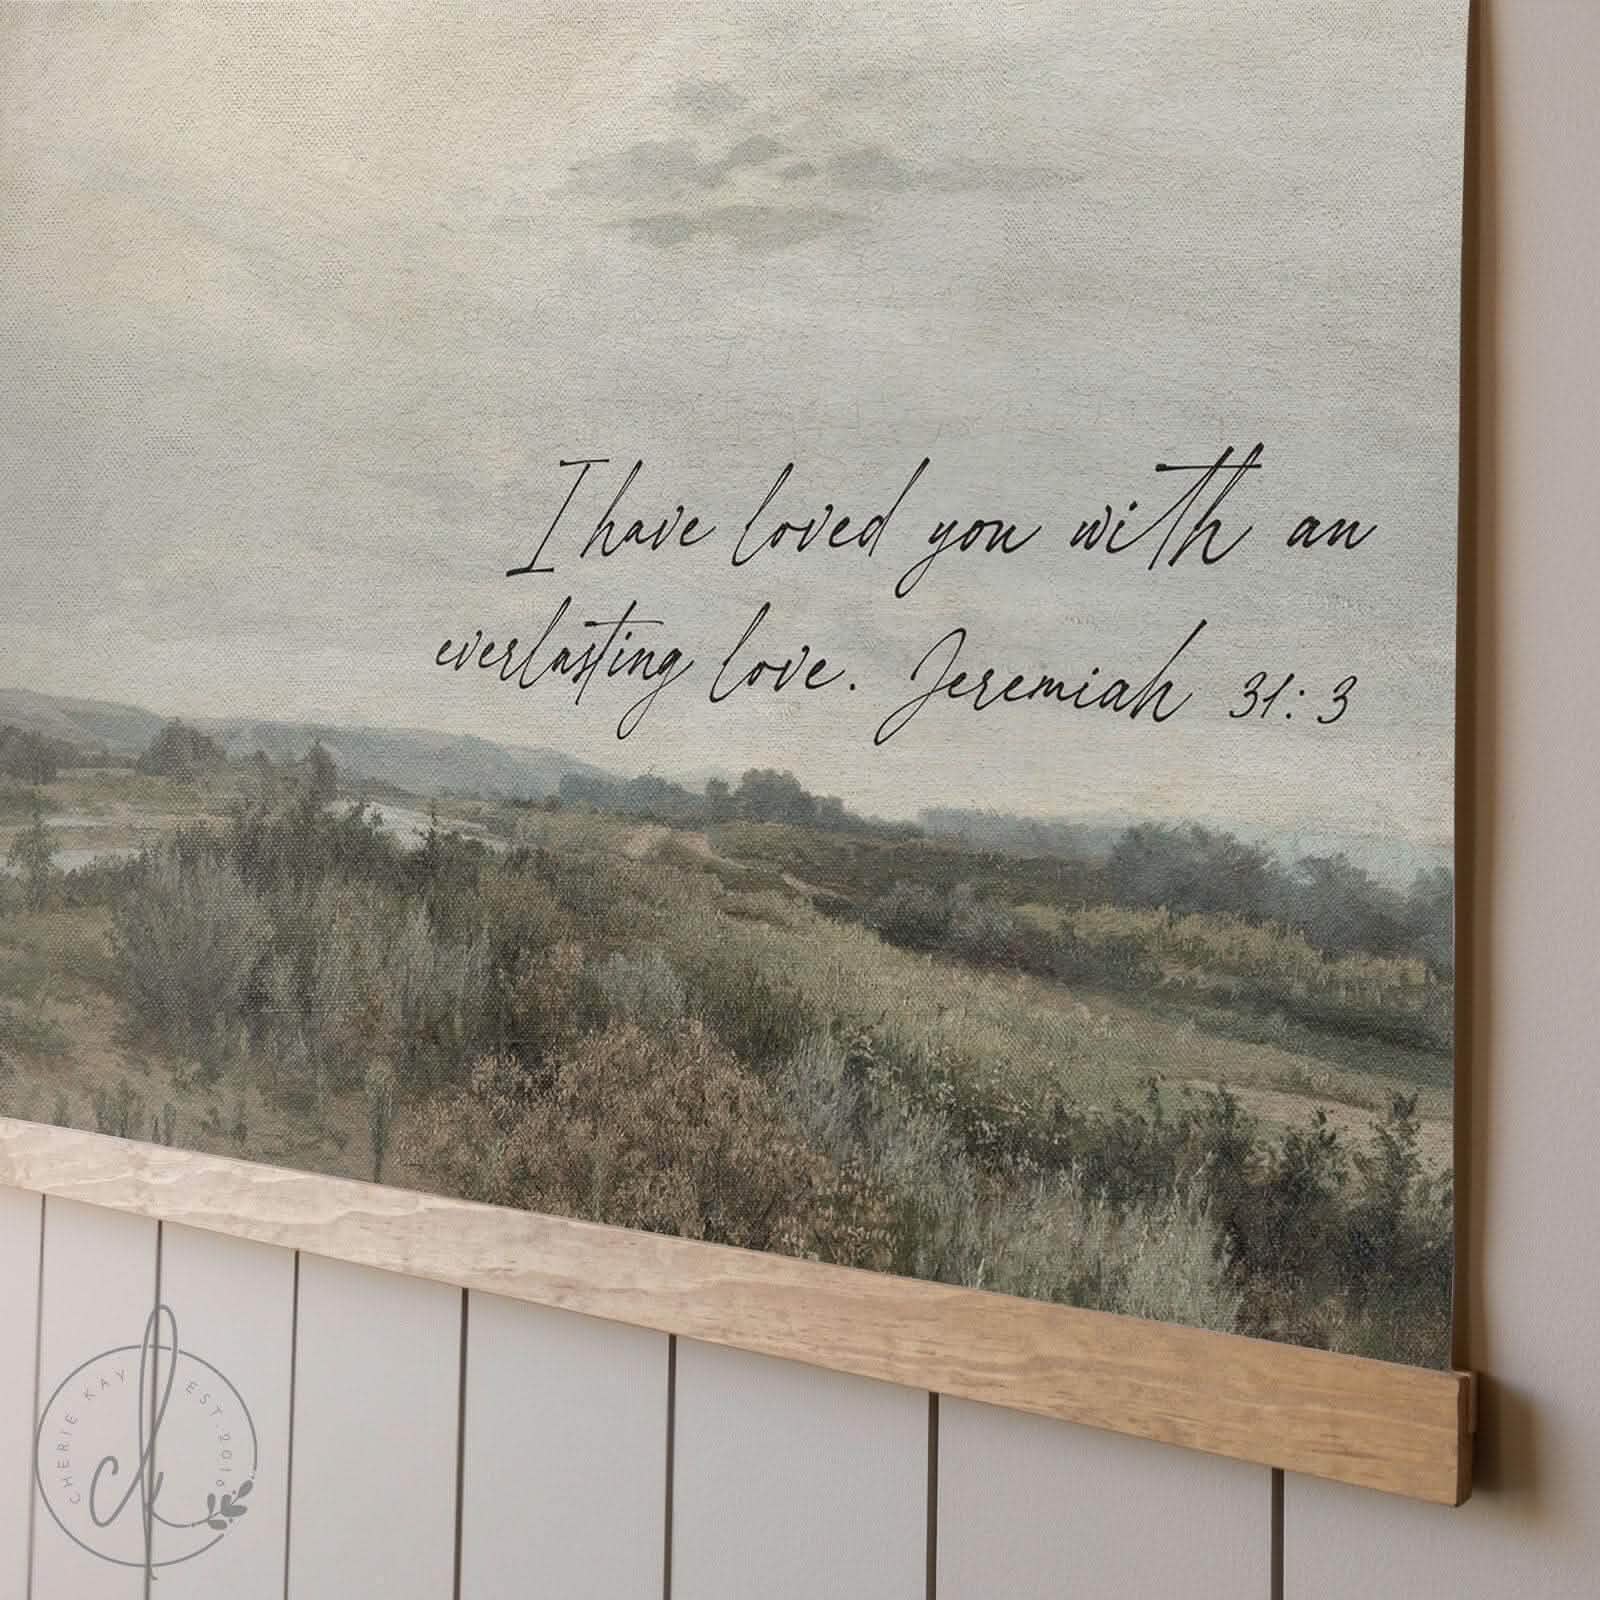 I have loved you with an
everlasting love. Jeremiah 31:3
CHERIE KAY EST. 2016
ck